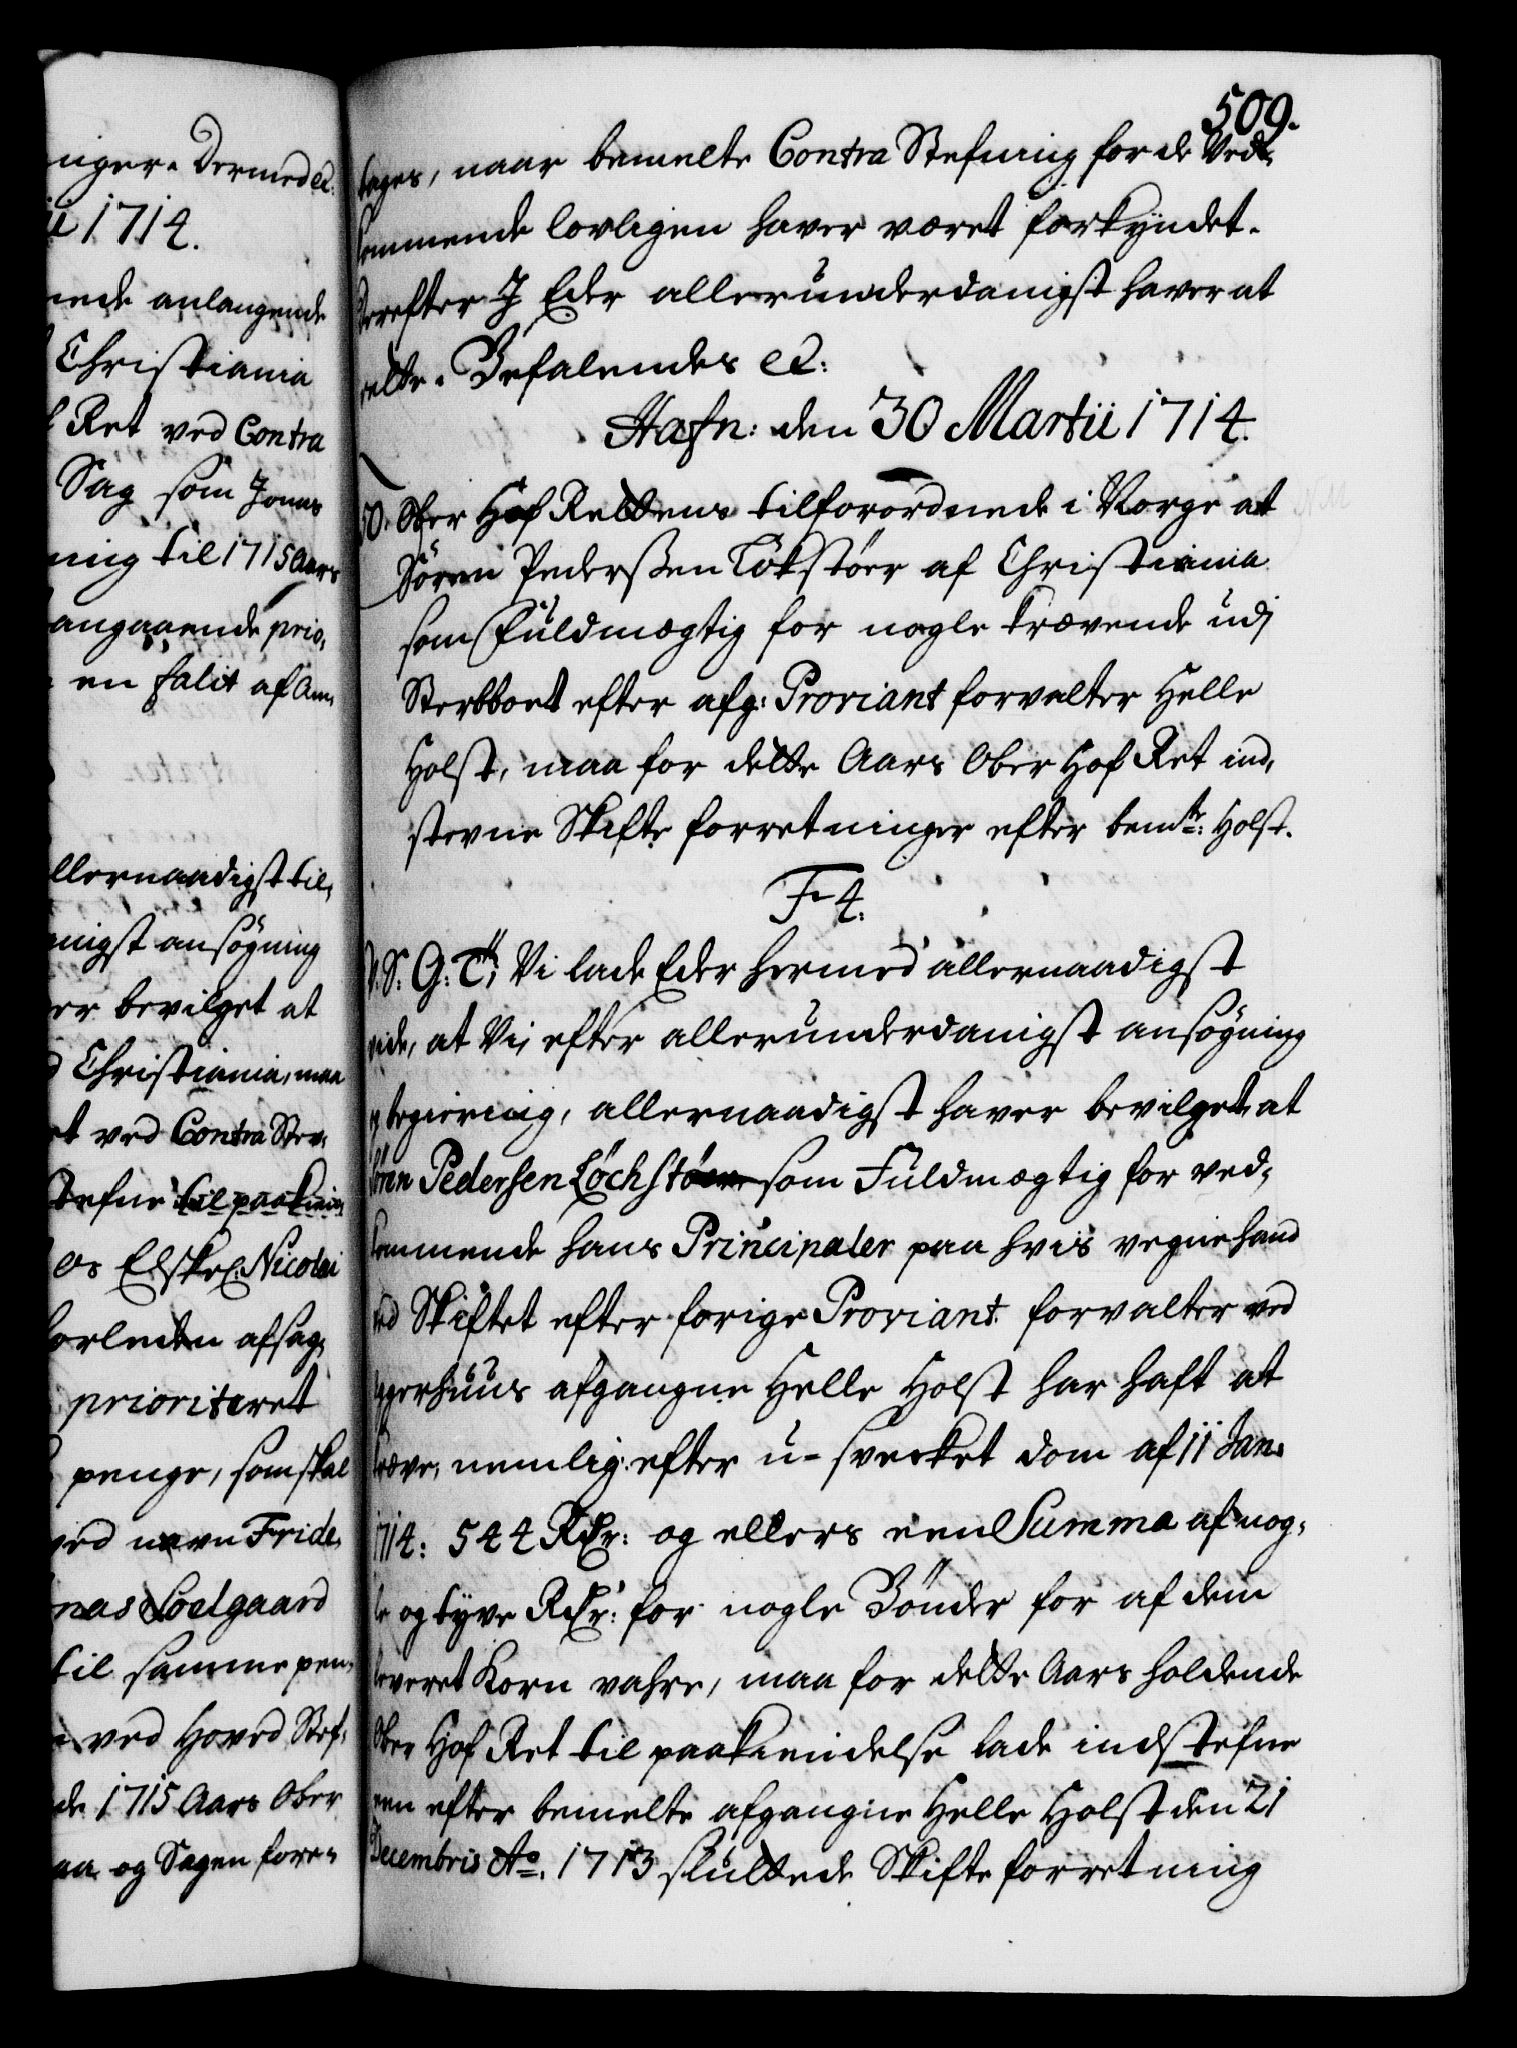 nger. Dermed etc:
ii 1714.
nede anlangende
Christiania
Ret ved Contra
Sag som Jonas
ning til 1715 Aars
angaaende prio,
en falit af Am,
allernaadigst til,
nigst ansøgning
er bevilget at
Christiania, maa
et ved Contra Stev,
Stefne til paakien,
Os Elskel: Nicolai
forleden afsag,
prioriteret
penge, som skal
ved navn Fride,
nas Loelgaard
til samme pen,
ved Hoved Stef,
de 1715 Aars Ober
aa og Sagen fore,
509.
tages, naar bemelte Contra Stefning for de Ved,
kommende lovligen haver været forkyndet.
Derefter I Eder allerunderdanigst haver at
rette. Befalendes etc:
Hafn: den 30 Martii 1714.
50. Ober Hof Rettens tilforordnede i Norge at
Sören Pederssen Lökstöer af Christiania
som Fuldmægtig for nogle Krævende udj
Sterbboet efter afg: Proviant forvalter Helle
Holst, maa for dette Aars Ober Hof Ret ind,
stevne Skifte forretninger efter bemte: Holst.
F 4.
V. S. G: T: Vi lade Eder hermed allernaadigst
vide, at Vi, efter allerunderdanigst ansøgning
og begiering, allernaadigst haver bevilget, at
Sören Pedersen Löchstöer som Fuldmægtig for ved,
kommende hans Principaler paa hvis vegne hand
ved Skiftet efter forige Proviant forvalter ved
Aggerhuus afgangne Helle Holst har haft at
kræve, nemlig: efter u-svecket dom af 11 Jan.
1714: 544 Rdr: og ellers een Summa af nog,
le og tyve Rdr: for nogle Bönder for af dem
leveret Korn vahre, maa for dette Aars holdende
Ober Hof Ret til paakiendelse lade indstefne
een efter bemelte afgangne Helle Holst den 21
Decembris Ao. 1713 sluttede Skifte forretning